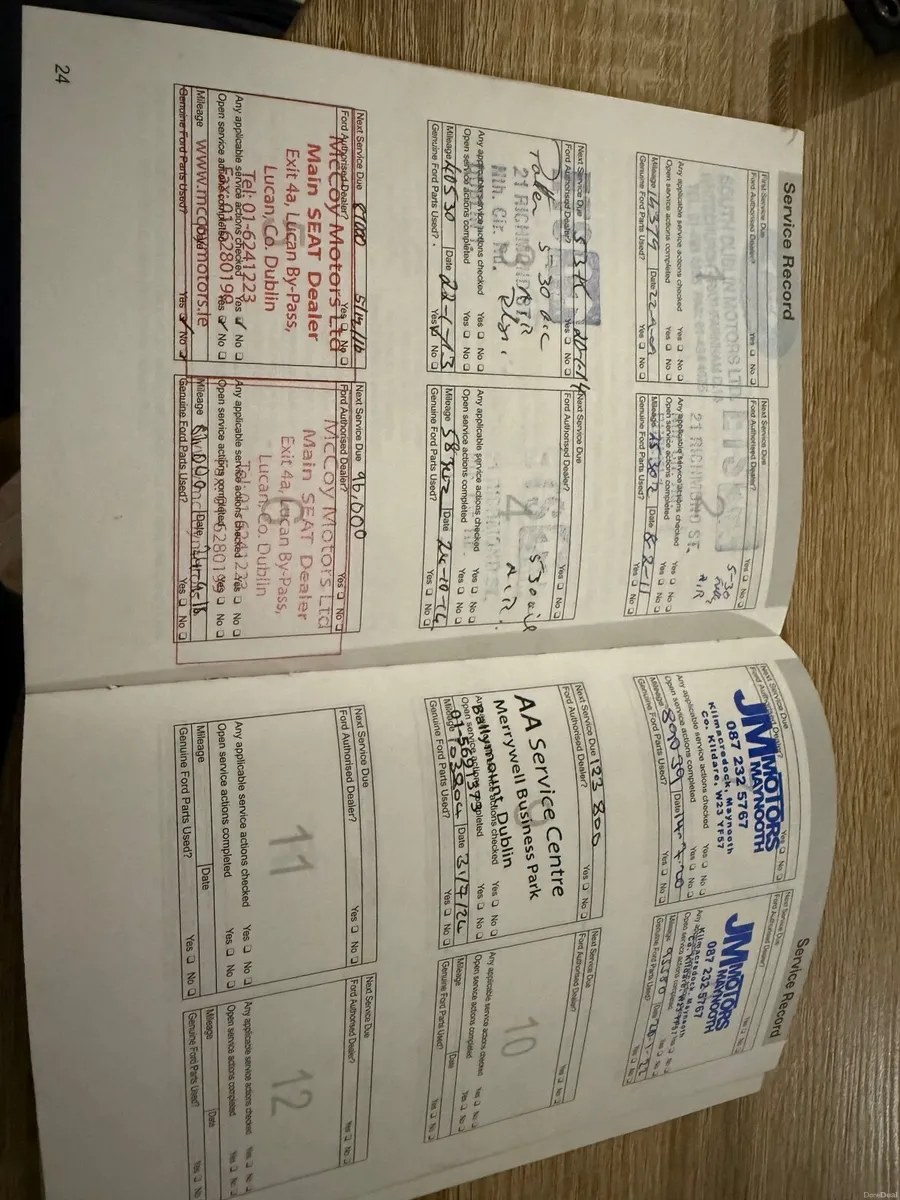 Service Record
First Service Due
Ford Authorised Dealer? Yes No
Any applicable service actions checked Yes No
Open service actions completed Yes No
Mileage 14379 Date
Genuine Ford Parts Used? Yes No
Next Service Due
Ford Authorised Dealer? Yes No
2
21 RICHMOND ST.
5-30
AIR
Any applicable service actions checked Yes No
Open service actions completed Yes No
Mileage 25302 Date 8-2-11
Genuine Ford Parts Used? Yes No
Next Service Due 53K 20-1-14
Ford Authorised Dealer? Yes No
21 RICHMOND ST.
Nth. Cir. Rd.
5-30
Any applicable service actions checked Yes No
Open service actions completed Yes No
Mileage 40530 Date 22-1-13
Genuine Ford Parts Used? Yes No
Next Service Due
Ford Authorised Dealer? Yes No
4
5-30 oil
AIR.
Any applicable service actions checked Yes No
Open service actions completed Yes No
Mileage Date 24-10-14
Genuine Ford Parts Used? Yes No
Next Service Due 5/12/16
Ford Authorised Dealer? Yes No
McCoy Motors Ltd
Main SEAT Dealer
Exit 4a, Lucan By-Pass,
Lucan, Co. Dublin
Tel: 01-6241223
Fax: 01-6280199
www.mccoymotors.ie
Any applicable service actions checked Yes No
Open service actions completed Yes No
Mileage
Genuine Ford Parts Used? Yes No
Next Service Due 96,000
Ford Authorised Dealer? Yes No
McCoy Motors Ltd
Main SEAT Dealer
Exit 4a, Lucan By-Pass,
Lucan, Co. Dublin
Any applicable service actions checked Yes No
Open service actions completed Yes No
Mileage Date
Genuine Ford Parts Used? Yes No
24
Service Record
Next Service Due
Ford Authorised Dealer? Yes No
JM MOTORS
MAYNOOTH
087 232 5767
Kilmacredock, Maynooth
Co. Kildare, W23 YF57
Any applicable service actions checked Yes No
Open service actions completed Yes No
Mileage Date
Genuine Ford Parts Used? Yes No
Next Service Due
Ford Authorised Dealer? Yes No
JM MOTORS
MAYNOOTH
087 232 5767
Kilmacredock, Maynooth
Any applicable service actions checked Yes No
Open service actions completed Yes No
Mileage Date
Genuine Ford Parts Used? Yes No
Next Service Due 123 800
Ford Authorised Dealer? Yes No
AA Service Centre
Merrywell Business Park
Ballymount, Dublin
01-5621373
Any applicable service actions checked Yes No
Open service actions completed Yes No
Mileage 103804 Date 31/7/24
Genuine Ford Parts Used? Yes No
Next Service Due
Ford Authorised Dealer? Yes No
10
Any applicable service actions checked Yes No
Open service actions completed Yes No
Mileage Date
Genuine Ford Parts Used? Yes No
Next Service Due
Ford Authorised Dealer? Yes No
11
Any applicable service actions checked Yes No
Open service actions completed Yes No
Mileage Date
Genuine Ford Parts Used? Yes No
Next Service Due
Ford Authorised Dealer? Yes No
12
Any applicable service actions checked Yes No
Open service actions completed Yes No
Mileage Date
Genuine Ford Parts Used? Yes No
DoneDeal